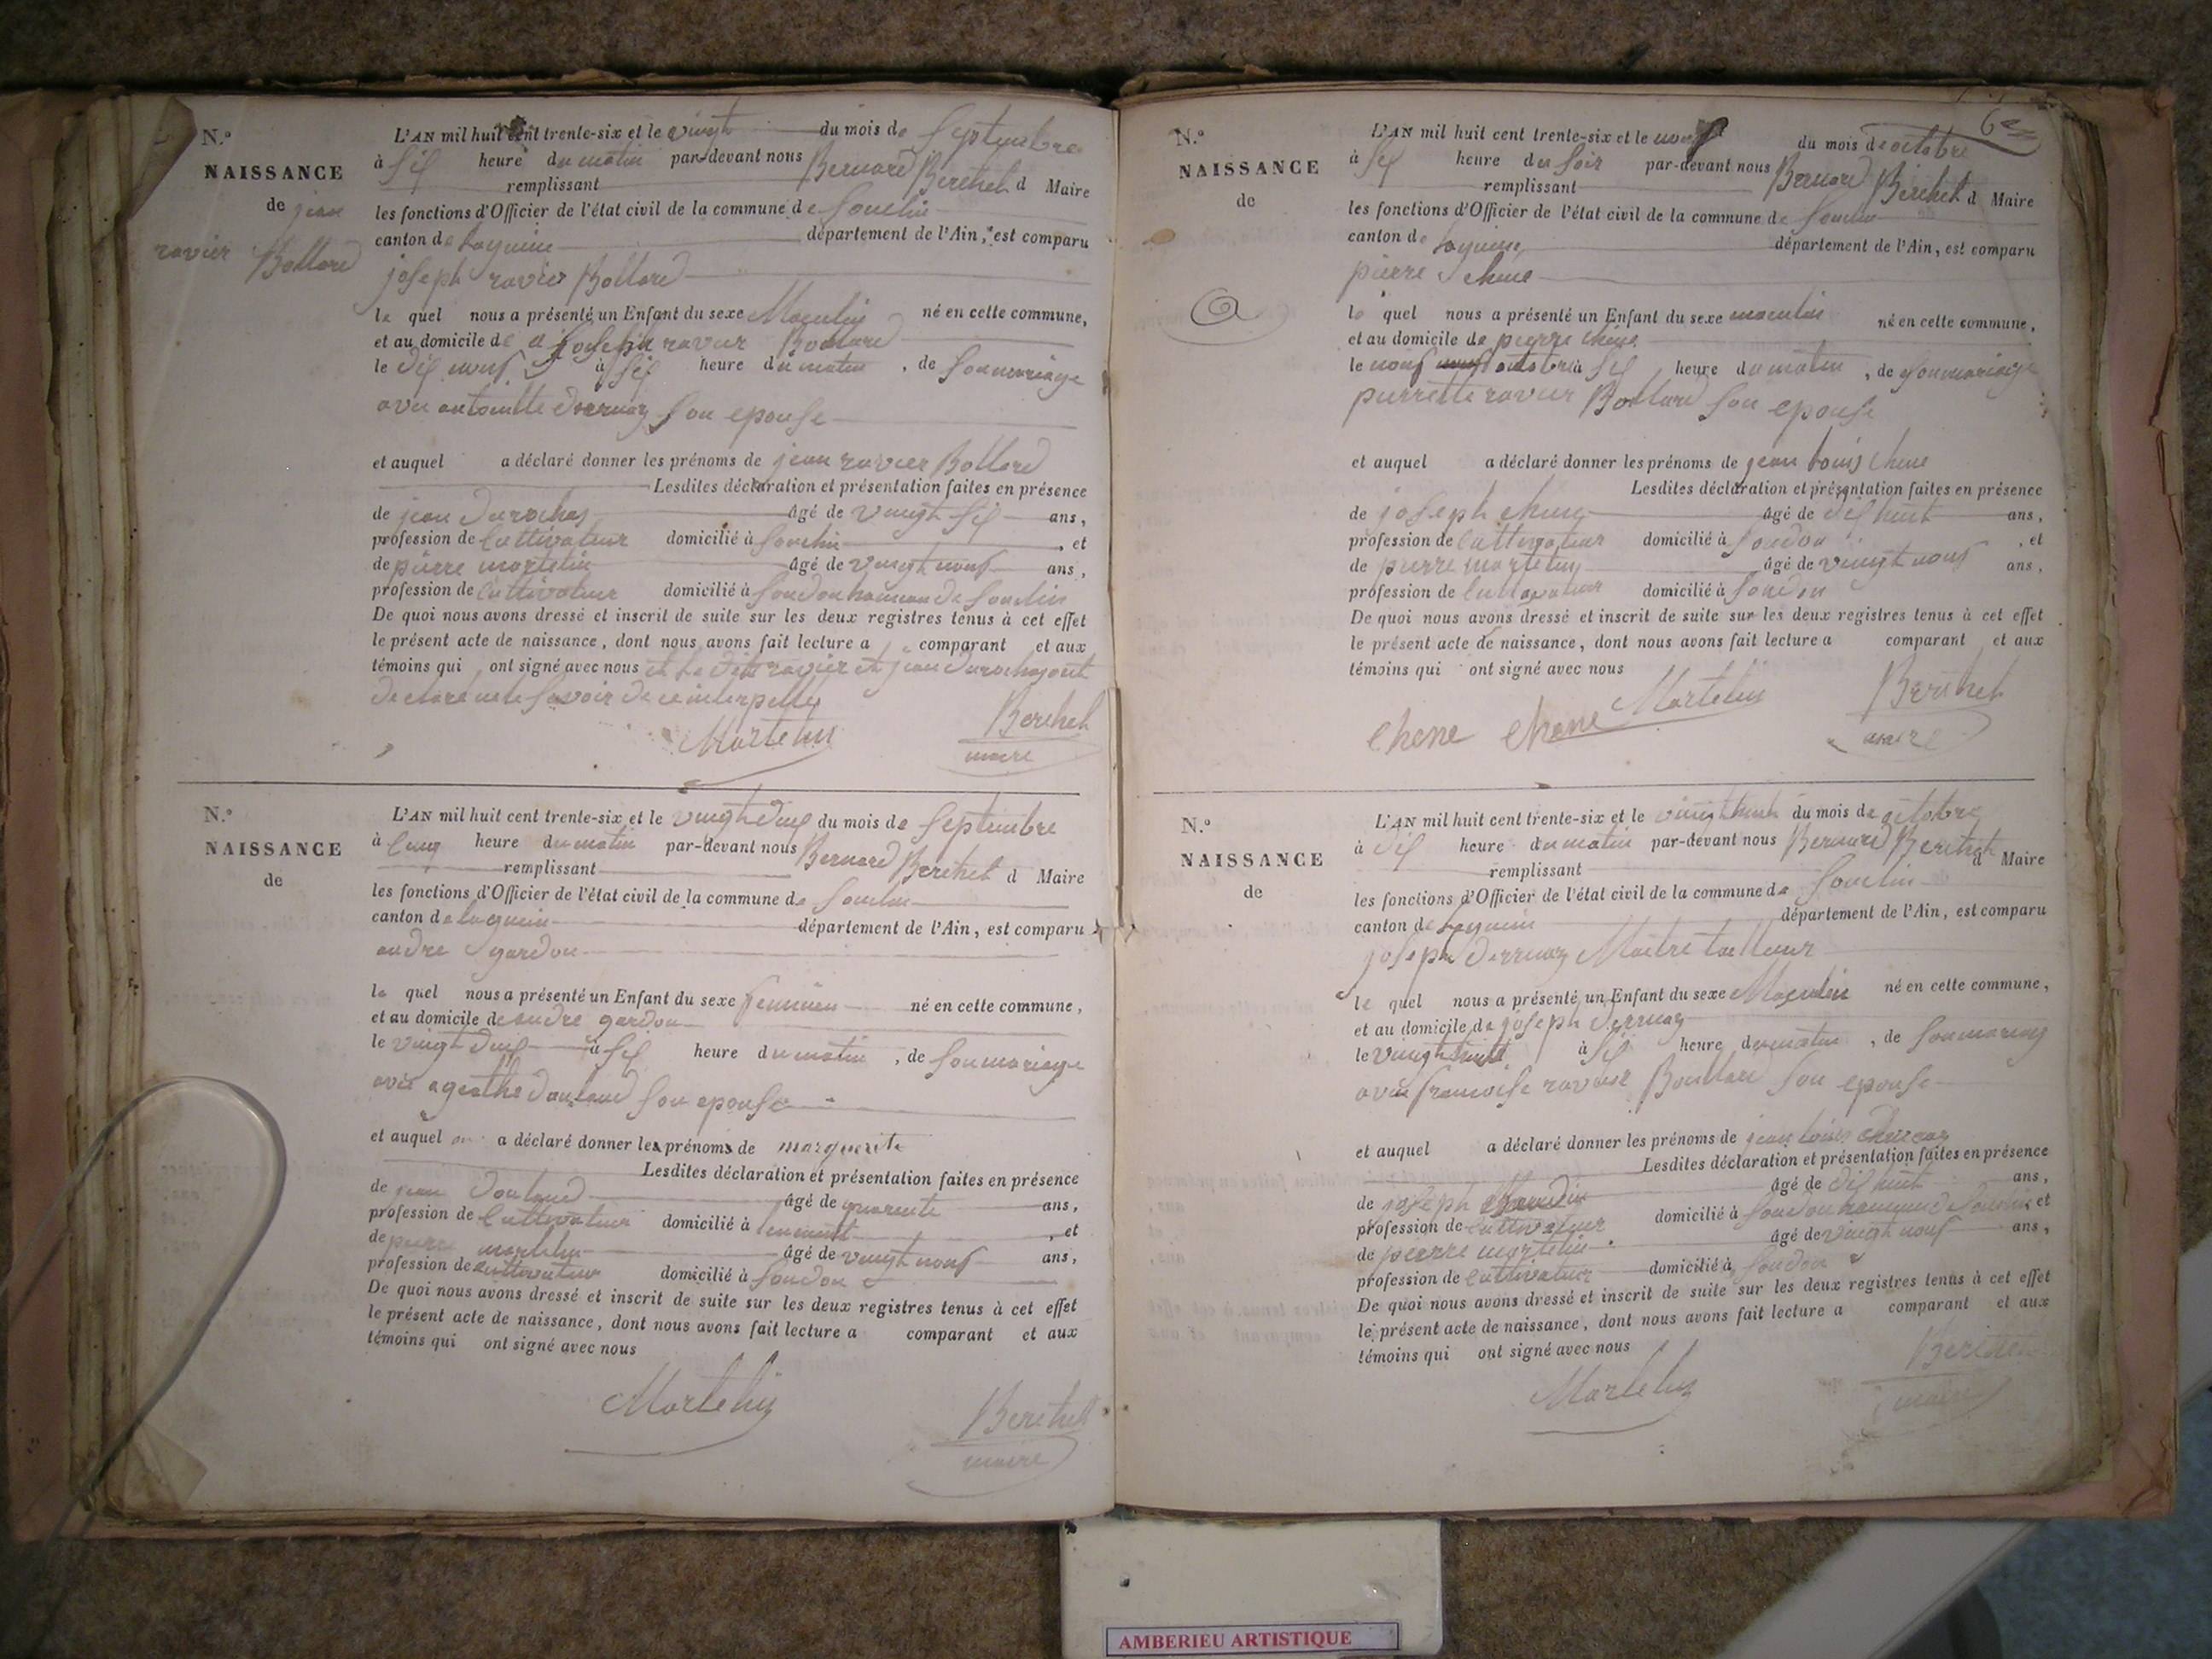 N.o
NAISSANCE
de jean
ravier Bollard
L'AN mil huit cent trente-six et le vingt du mois de Septembre
à Sis heure du matin par-devant nous Bernard Berthet d Maire
remplissant
les fonctions d'Officier de l'état civil de la commune de Souclin
canton de Lagnieu département de l'Ain, est comparu
joseph ravier Bollard
le quel nous a présenté un Enfant du sexe Masculin né en cette commune,
et au domicile de joseph ravier Bollard
le dis nouf à Sis heure du matin, de Son mariage
avec antoinette Son epouse
et auquel a déclaré donner les prénoms de jean ravier Bollard
Lesdites déclaration et présentation faites en présence
de jean Durochas âgé de vingt Sis ans,
profession de Cultivateur domicilié à Souclin, et
de pierre martelin âgé de vingt nouf ans,
profession de Cultivateur domicilié à Soudon hameau de Souclin
De quoi nous avons dressé et inscrit de suite sur les deux registres tenus à cet effet
le présent acte de naissance, dont nous avons fait lecture a comparant et aux
témoins qui ont signé avec nous et Le dit ravier et jean Durochas ont
declaré ne le Savoir de ce interpellés
Martelin Berthet
maire
N.o
NAISSANCE
de
L'AN mil huit cent trente-six et le vingt Dius du mois de Septembre
à Cinq heure du matin par-devant nous Bernard Berthet d Maire
remplissant
les fonctions d'Officier de l'état civil de la commune de Souclin
canton de Lagnieu département de l'Ain, est comparu
andre gardon
le quel nous a présenté un Enfant du sexe feminin né en cette commune,
et au domicile de andre gardon
le vingt Dius à Sis heure du matin, de Son mariage
avec agathe Son epouse
et auquel a déclaré donner les prénoms de marguerite
Lesdites déclaration et présentation faites en présence
de jean âgé de quarente ans,
profession de Cultivateur domicilié à, et
de pierre martelin âgé de vingt nouf ans,
profession de Cultivateur domicilié à Soudon
De quoi nous avons dressé et inscrit de suite sur les deux registres tenus à cet effet
le présent acte de naissance, dont nous avons fait lecture a comparant et aux
témoins qui ont signé avec nous
Martelin Berthet
maire
N.o
NAISSANCE
de
L'AN mil huit cent trente-six et le nouf du mois de octobre
à Sis heure du Soir par-devant nous Bernard Berthet d Maire
remplissant
les fonctions d'Officier de l'état civil de la commune de Souclin
canton de Lagnieu département de l'Ain, est comparu
pierre chene
le quel nous a présenté un Enfant du sexe masculin né en cette commune,
et au domicile de pierre chene
le nouf octobre à Sis heure du matin, de Son mariage
pierrette ravier Bollard Son epouse
et auquel a déclaré donner les prénoms de jean Louis chene
Lesdites déclaration et présentation faites en présence
de joseph chene âgé de dis huit ans,
profession de Cultivateur domicilié à Soudon, et
de pierre martelin âgé de vingt nouf ans,
profession de Cultivateur domicilié à Soudon
De quoi nous avons dressé et inscrit de suite sur les deux registres tenus à cet effet
le présent acte de naissance, dont nous avons fait lecture a comparant et aux
témoins qui ont signé avec nous
Chene Chene Martelin Berthet
maire
N.o
NAISSANCE
de
L'AN mil huit cent trente-six et le vingt huit du mois de octobre
à dis heure du matin par-devant nous Bernard Berthet d Maire
remplissant
les fonctions d'Officier de l'état civil de la commune de Souclin
canton de Lagnieu département de l'Ain, est comparu
joseph Derruaz Maitre tailleur
le quel nous a présenté un Enfant du sexe Masculin né en cette commune,
et au domicile de joseph Derruaz
le vingt huit à Sis heure du matin, de Son mariag
avec francoise ravier Bollard Son epouse
et auquel a déclaré donner les prénoms de jean Louis
Lesdites déclaration et présentation faites en présence
de joseph âgé de dis huit ans,
profession de Cultivateur domicilié à Soudon hameau de Souclin et
de pierre martelin âgé de vingt nouf ans,
profession de Cultivateur domicilié à Soudon
De quoi nous avons dressé et inscrit de suite sur les deux registres tenus à cet effet
le présent acte de naissance, dont nous avons fait lecture a comparant et aux
témoins qui ont signé avec nous
Martelin Berthet
maire
AMBERIEU ARTISTIQUE